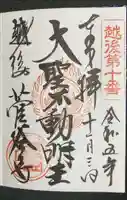 越後第十番
令和五年
十一月三日
奉拝
大聖不動明王
越後
菩提寺